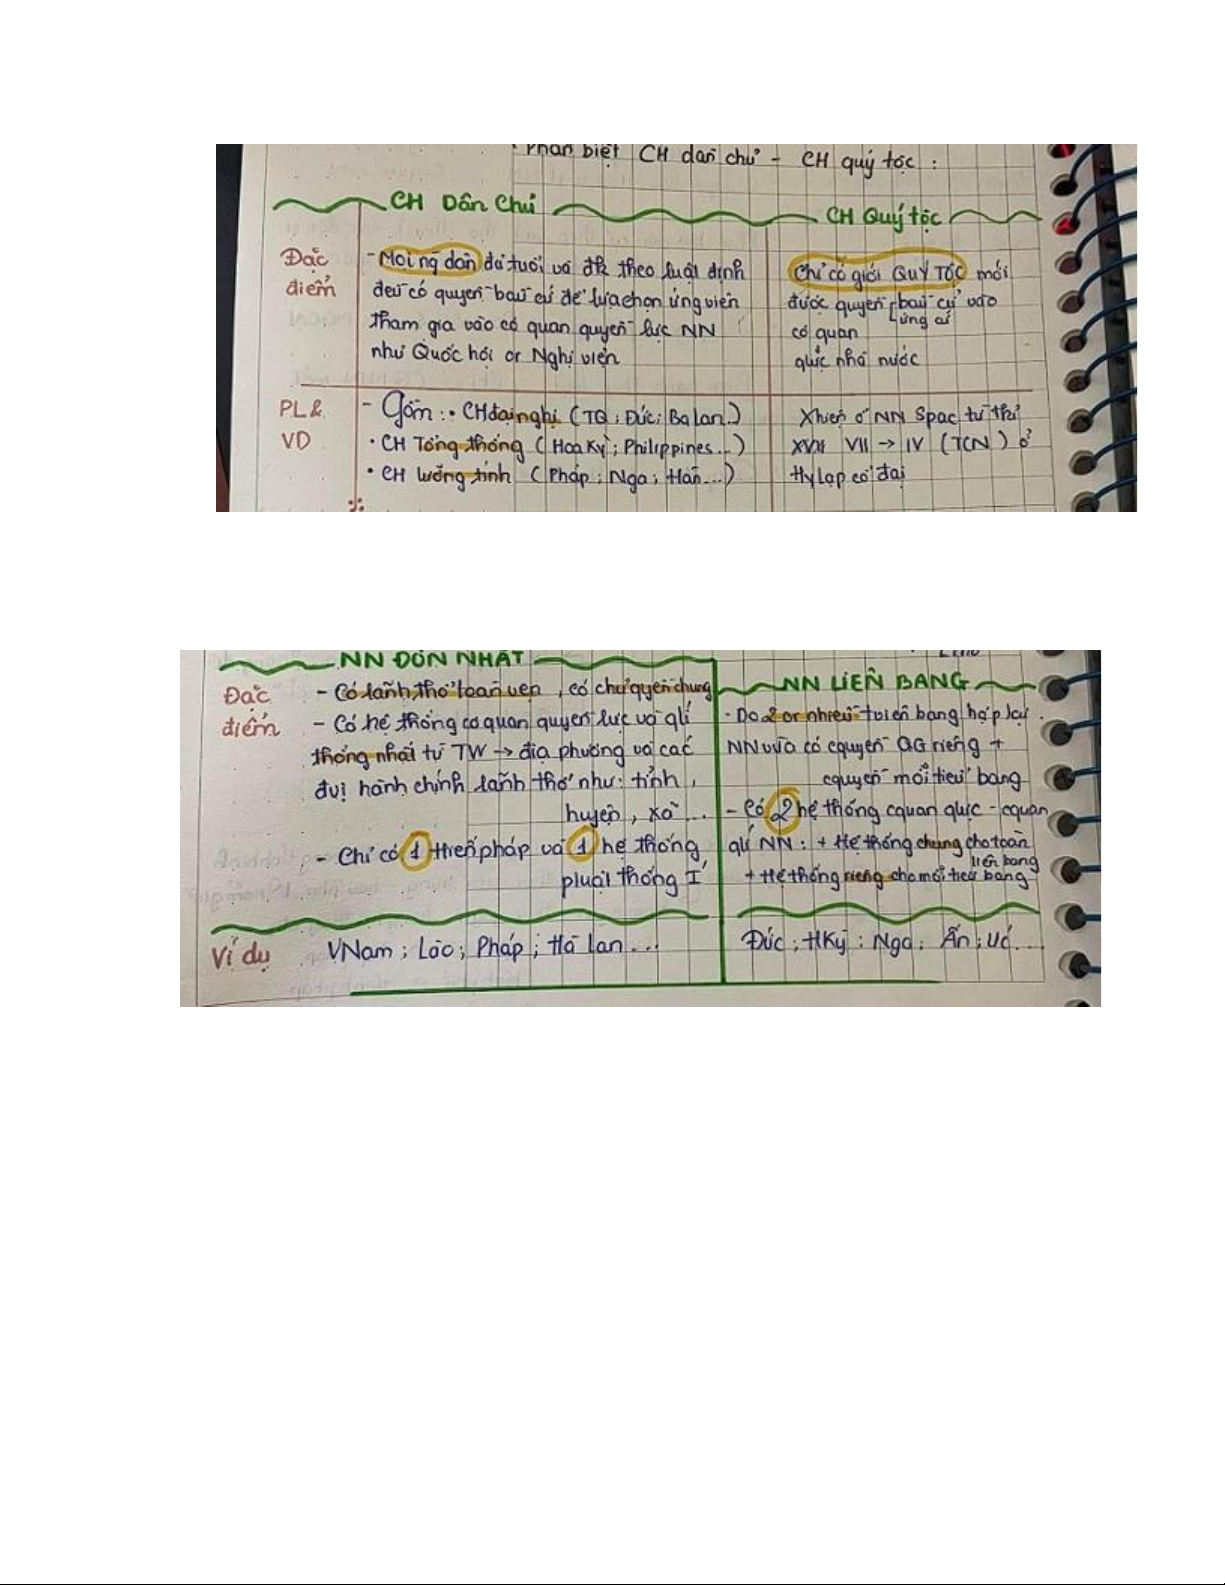 Phân biệt CH dân chủ - CH quý tộc :
CH Dân Chủ
CH Quý tộc
Đặc điểm
- Mọi ng dân đủ tuổi và đk theo luật định
đều có quyền bầu cử để lựa chọn ứng viên
tham gia vào cơ quan quyền lực NN
như Quốc hội or Nghị viện
Chỉ có giới QUÝ TỘC mới
được quyền bầu cử vào
ứng cử
cơ quan
qlực nhà nước
PL &
VD
- Gồm: • CH đại nghị (TQ; Đức; Ba lan..)
• CH Tổng thống (Hoa Kỳ; Philippines...)
• CH lưỡng tính (Pháp; Nga; Hàn...)
Xhiện ở NN Spac từ thế
XVII VII → IV (TCN) ở
Hy lạp cổ đại
NN ĐƠN NHẤT
NN LIÊN BANG
Đặc
điểm
- Có lãnh thổ toàn vẹn, có chủ quyền chung
- Có hệ thống cơ quan quyền lực và qlí
thống nhất từ TW → địa phương và các
đvị hành chính lãnh thổ như: tỉnh,
huyện, xã...
- Chỉ có 1 Hiến pháp và 1 hệ thống
pluật thống I
- Do 2 or nhiều bang hợp lại.
NN vừa có cquyền QG riêng +
cquyền mỗi tiểu bang
- Có 2 hệ thống cquan qlực - cquan
qlí NN: + Hệ thống chung cho toàn
liên bang
+ Hệ thống riêng cho mỗi tiểu bang
Ví dụ
VNam; Lào; Pháp; Hà lan...
Đức; HKỳ; Nga; Ấn; Úc...